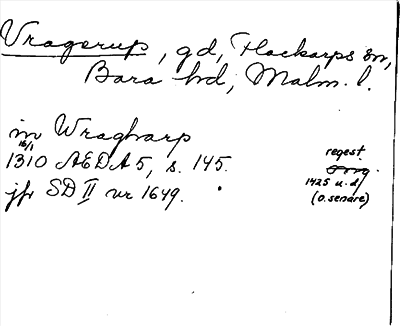 Vragerup, gd, Flackarps sn,
Bara hd, Malm. l.
in Wragharp
16/1
1310 AEDA 5, s. 145.
regest
orig.
1425 u.d.
(o. senare)
jfr SD II nr 1649.